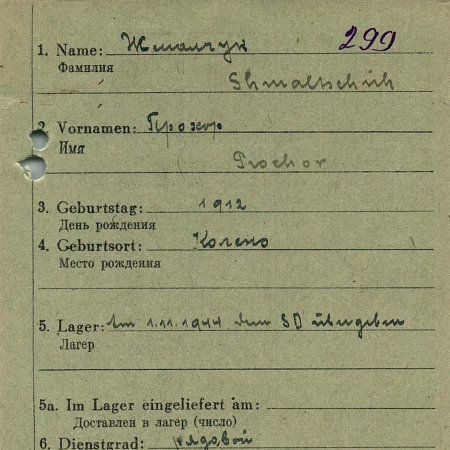 1. Name: Жмальчук 299
Фамилия
Shmaltschuk
2. Vornamen: Прохор
Имя
Prochor
3. Geburtstag: 1912
День рождения
4. Geburtsort: Колено
Место рождения
5. Lager: Am 1.11.1944 dem SD übergeben
Лагерь
5a. Im Lager eingeliefert am:
Доставлен в лагерь (число)
6. Dienstgrad: рядовой